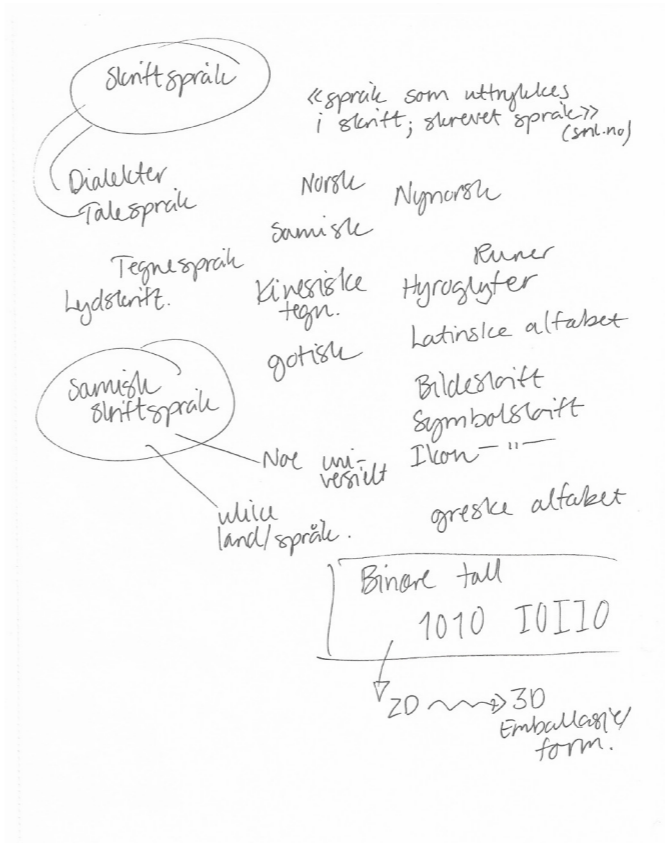 Skriftspråk
«språk som uttrykkes
i skrift; skrevet språk»
(snl.no)
Dialekter
Talespråk
Norsk
Nynorsk
Samisk
Tegnespråk
Lydskrift.
Kinesiske
tegn.
Runer
Hyroglyfer
Latinske alfabet
gotisk
Bildeskrift
Symbolskrift
Ikon —"—
Samisk
skriftspråk
Noe uni-
versielt
ulike
land/språk.
greske alfabet
Binære tall
1010 IOIIO
2D 3D
Emballasje/
form.